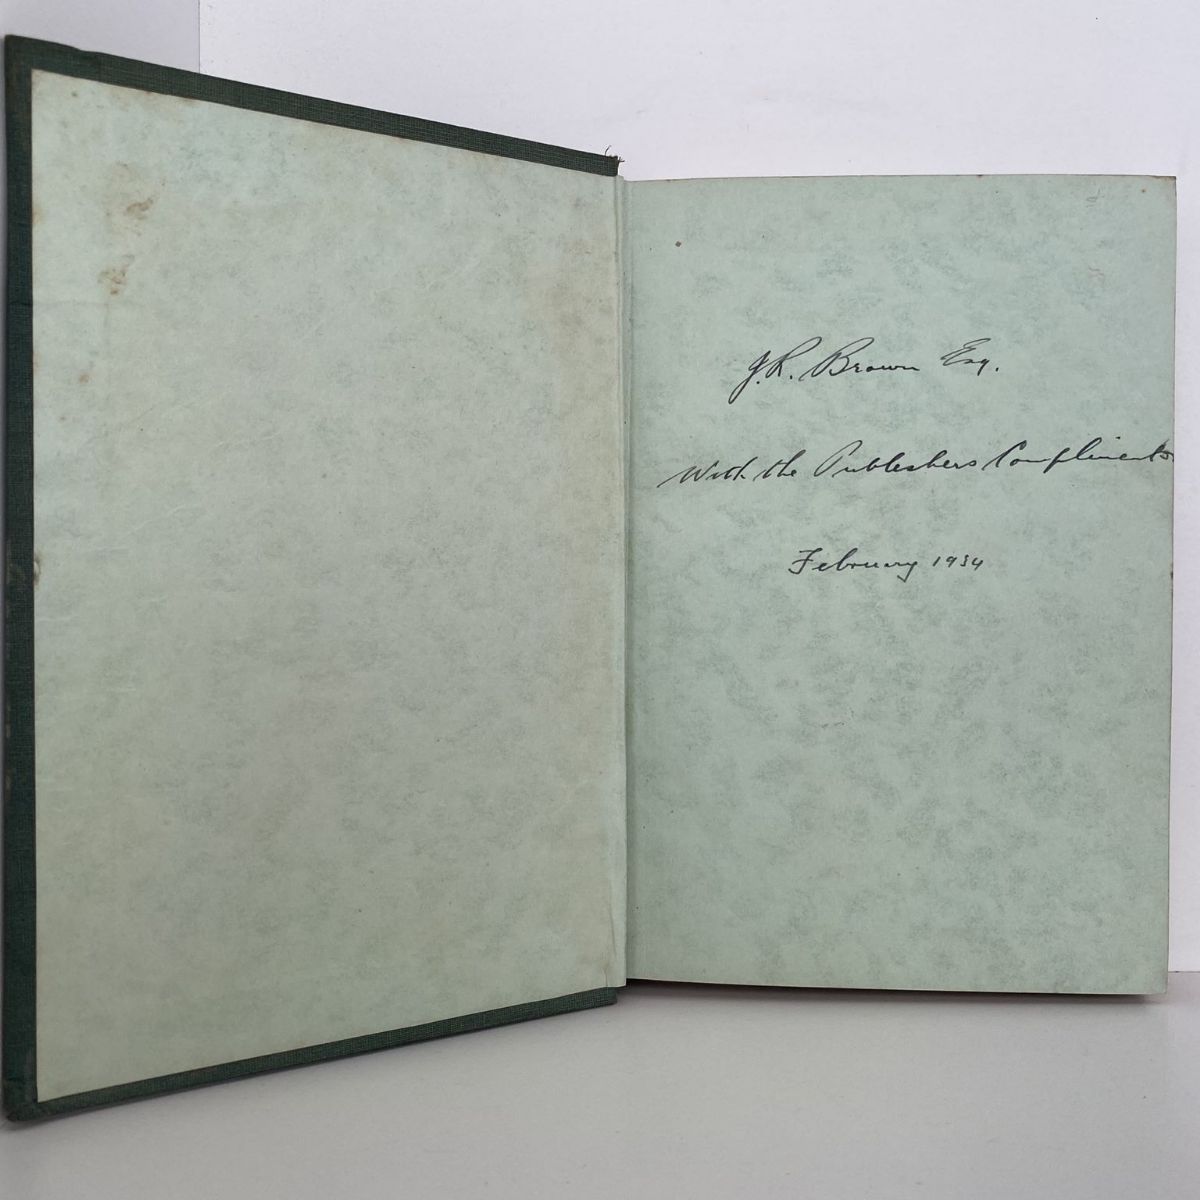 J. R. Brown Esq.
With the Publishers Compliments
February 1934